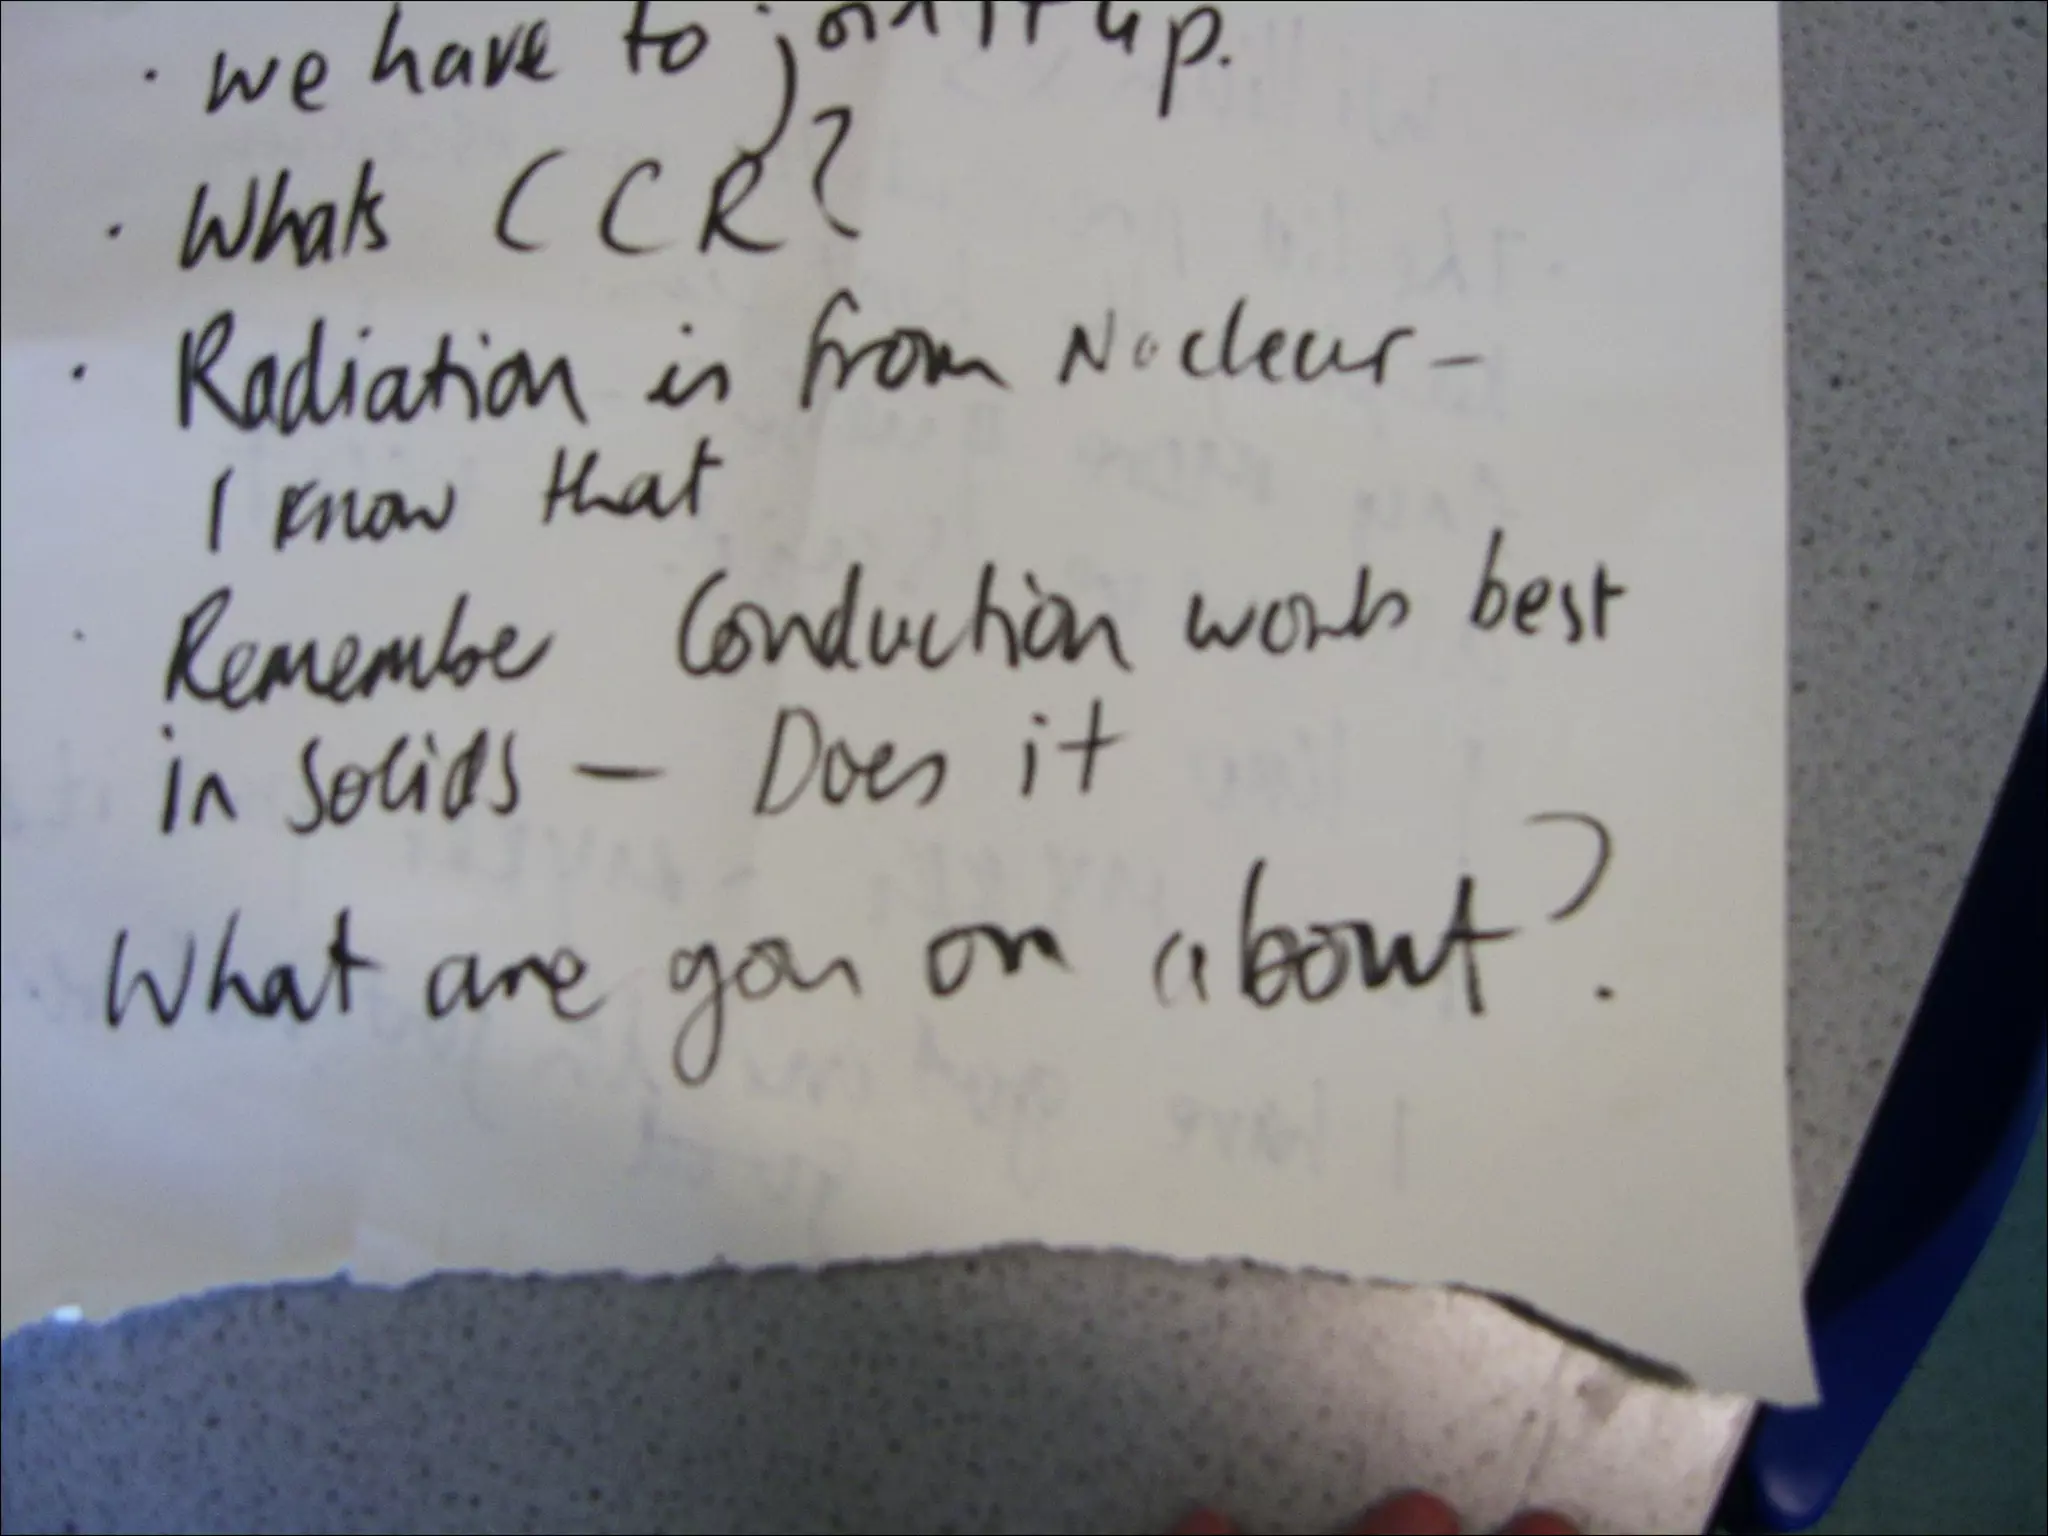 · we have to join it up.
· Whats CCR?
· Radiation is from Nuclear –
I know that
· Remembe Conduction works best
in Solids – Does it
What are you on about?